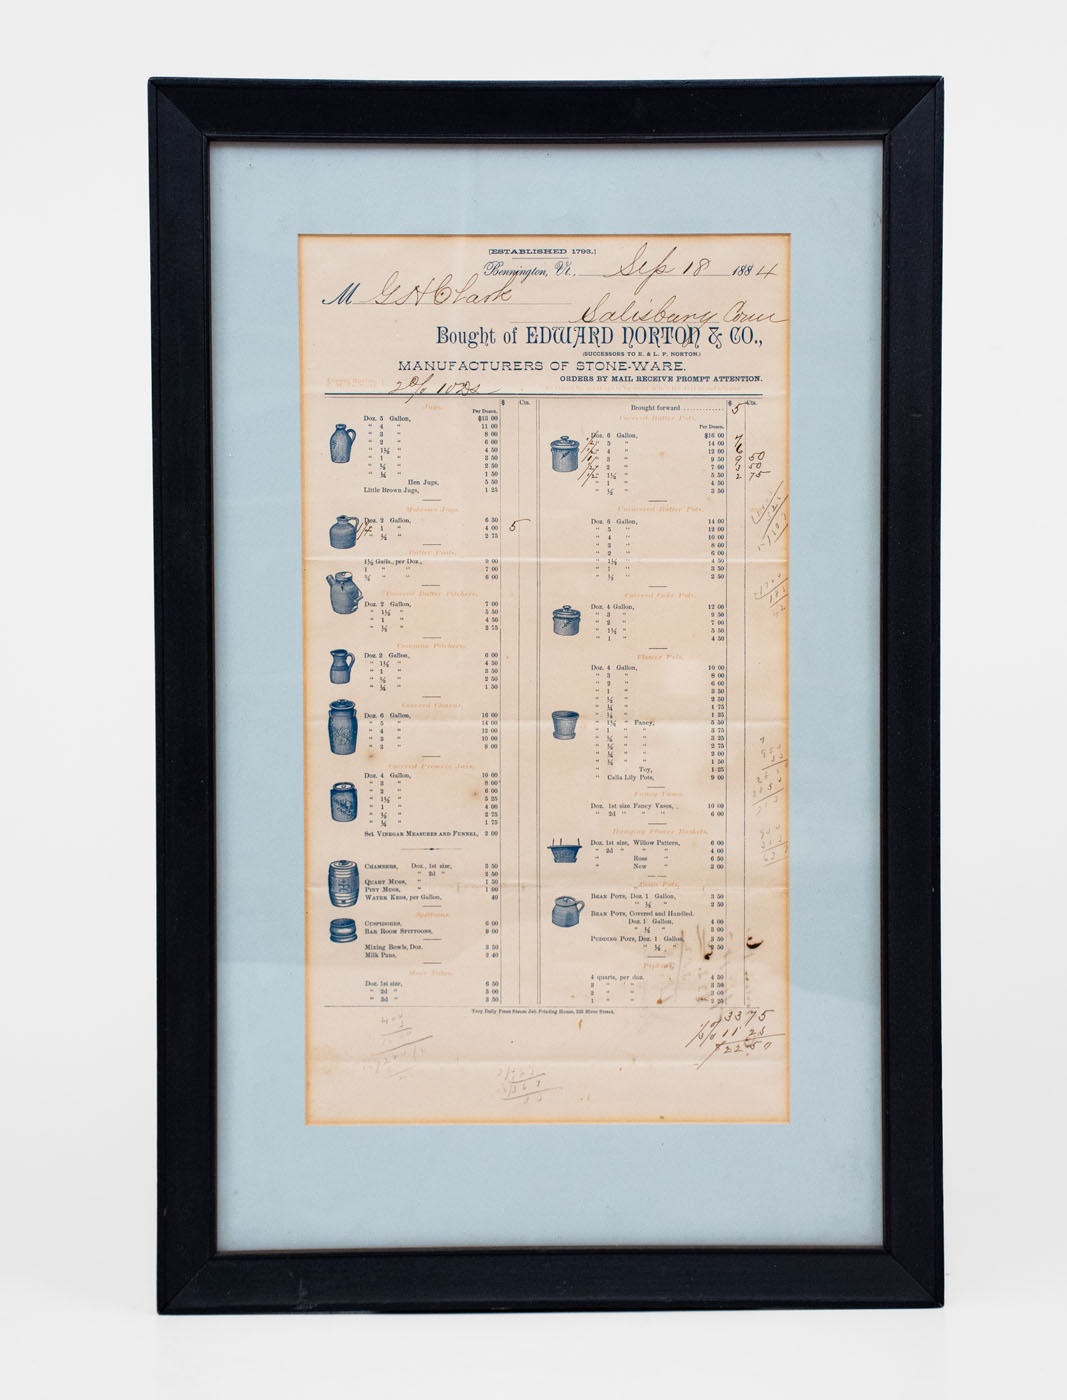 [ESTABLISHED 1793.]
Bennington, Vt., Sep 18 1884
M G H Clark
Salisbury Conn
Bought of EDWARD NORTON & CO.,
(SUCCESSORS TO E. & L. P. NORTON.)
MANUFACTURERS OF STONE-WARE.
ORDERS BY MAIL RECEIVE PROMPT ATTENTION.
2% 10 Ds
$ Cts.
Jugs.
Per Dozen.
Doz. 5 Gallon, $13 00
" 4 " 11 00
" 3 " 8 00
" 2 " 6 00
" 1½ " 4 50
" 1 " 3 50
" ½ " 2 50
" ¼ " 1 50
Hen Jugs, 5 50
Little Brown Jugs, 1 25
Molasses Jugs.
Doz. 2 Gallon, 6 50
" 1 " 4 00 5
" ½ " 2 75
Batter Pails.
1½ Galls., per Doz., 9 00
1 " " 7 00
" " 6 00
Covered Batter Pitchers.
Doz. 2 Gallon, 7 00
" 1½ " 5 50
" 1 " 4 50
" ½ " 2 75
Common Pitchers.
Doz. 2 Gallon, 6 00
" 1½ " 4 50
" 1 " 3 50
" ½ " 2 50
" ¼ " 1 50
Covered Churns.
Doz. 6 Gallon, 16 00
" 5 " 14 00
" 4 " 12 00
" 3 " 10 00
" 2 " 8 00
Covered Preserve Jars.
Doz. 4 Gallon, 10 00
" 3 " 8 00
" 2 " 6 00
" 1½ " 5 25
" 1 " 4 00
" ½ " 2 75
" ¼ " 1 75
SET VINEGAR MEASURES AND FUNNEL, 2 00
CHAMBERS, Doz., 1st size, 3 50
" 2d " 2 50
QUART MUGS, " 1 50
PINT MUGS, " 1 00
WATER KEGS, per Gallon, 40
Spittoons.
CUSPIDORES, 6 00
BAR ROOM SPITTOONS, 9 00
Mixing Bowls, Doz. 3 50
Milk Pans, 2 40
Doz. 1st size, 6 50
" 2d " 5 00
" 3d " 3 50
$ Cts.
Brought forward 5
Covered Butter Pots.
Per Dozen.
Doz. 6 Gallon, $16 00
" 5 " 14 00 7
" 4 " 12 00 6
" 3 " 9 50 9 50
" 2 " 7 00 3 50
" 1½ " 5 50 2 75
" 1 " 4 50
" ½ " 3 50
Uncovered Butter Pots.
Doz. 6 Gallon, 14 00
" 5 " 12 00
" 4 " 10 00
" 3 " 8 00
" 2 " 6 00
" 1½ " 4 50
" 1 " 3 50
" ½ " 2 50
Covered Cake Pots.
Doz. 4 Gallon, 12 00
" 3 " 9 50
" 2 " 7 00
" 1½ " 5 50
" 1 " 4 50
Flower Pots.
Doz. 4 Gallon, 10 00
" 3 " 8 00
" 2 " 6 00
" 1 " 3 50
" ½ " 2 50
" ¼ " 1 75
" " 1 25
" 1½ " Fancy, 5 50
" 1 " " 3 75
" " " 3 25
" ½ " " 2 75
" ¼ " " 2 00
" " " 1 50
" Toy, 1 25
" Calla Lily Pots, 9 00
Fancy Vases.
Doz. 1st size Fancy Vases, 10 00
" 2d " " " 6 00
Hanging Flower Baskets.
Doz. 1st size, Willow Pattern, 6 00
" 2d " " " 4 00
" Rose " 6 50
" New " 3 00
Bean Pots.
BEAN POTS, Doz. 1 Gallon, 3 50
" ½ " 2 50
BEAN POTS, Covered and Handled.
Doz. 1 Gallon, 4 00
" ½ " 3 00
PUDDING POTS, Doz. 1 Gallon, 3 50
" ½ " 2 50
4 quarts, per doz. 4 50
3 " "
2 " " 3 00
1 " " 2 25
Troy Daily Press Steam Job Printing House, 208 River Street.
33 75
11 25
$ 22 50